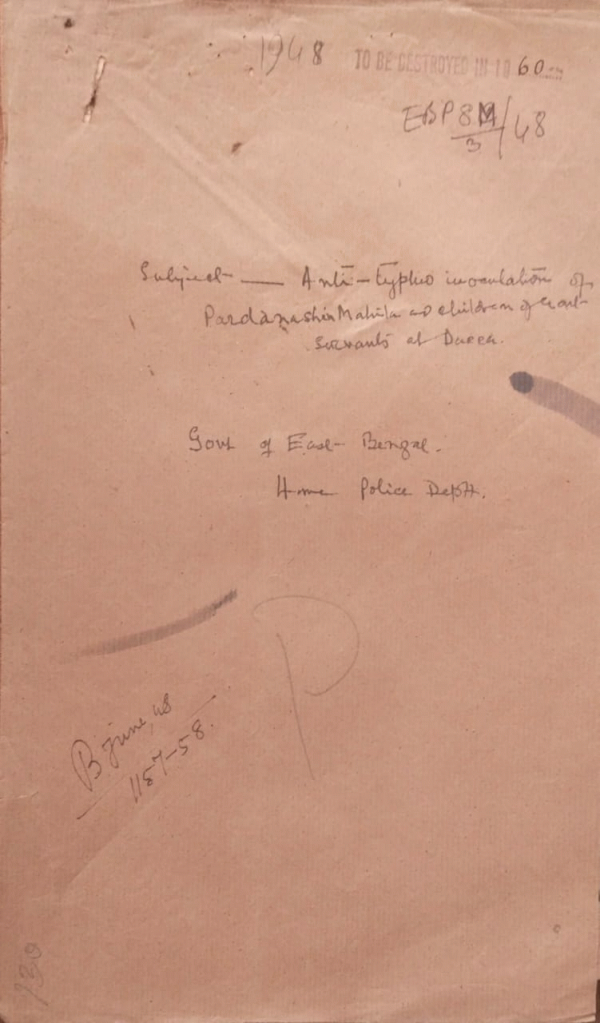 1948
TO BE DESTROYED IN 1960
EBP 8M/48
3
Subject — Anti-typhoid inoculation of
Pardanashin Mahila and children of Govt
Servants at Dacca.
Govt of East Bengal.
Home Police Deptt.
P
B June, 48
1157-58.
130